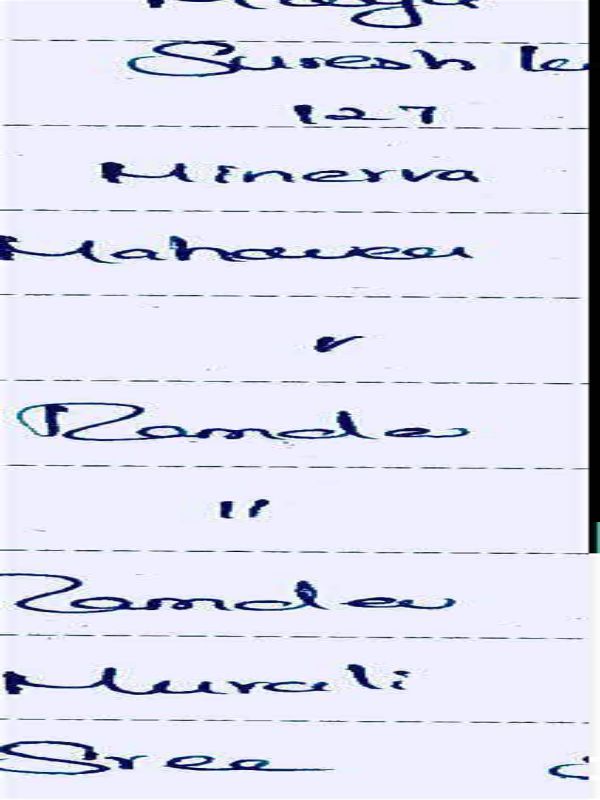 Suresh
127
Minerva
Mahaveer
"
Ramdev
"
Ramdev
Murali
Sree